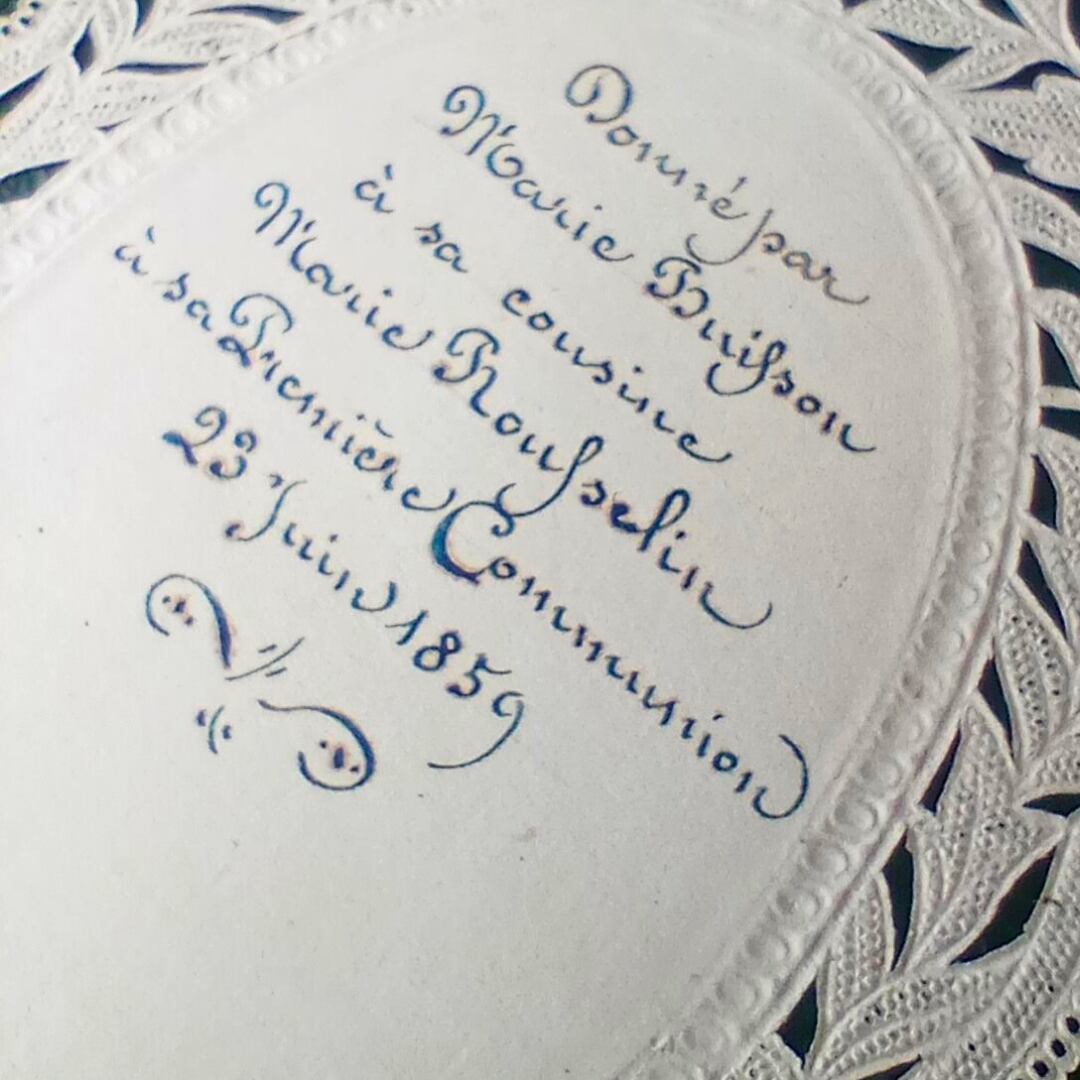 Donné par
Marie Buisson
à sa cousine
Marie Rousselin
à sa Première Communion
23 Juin 1859